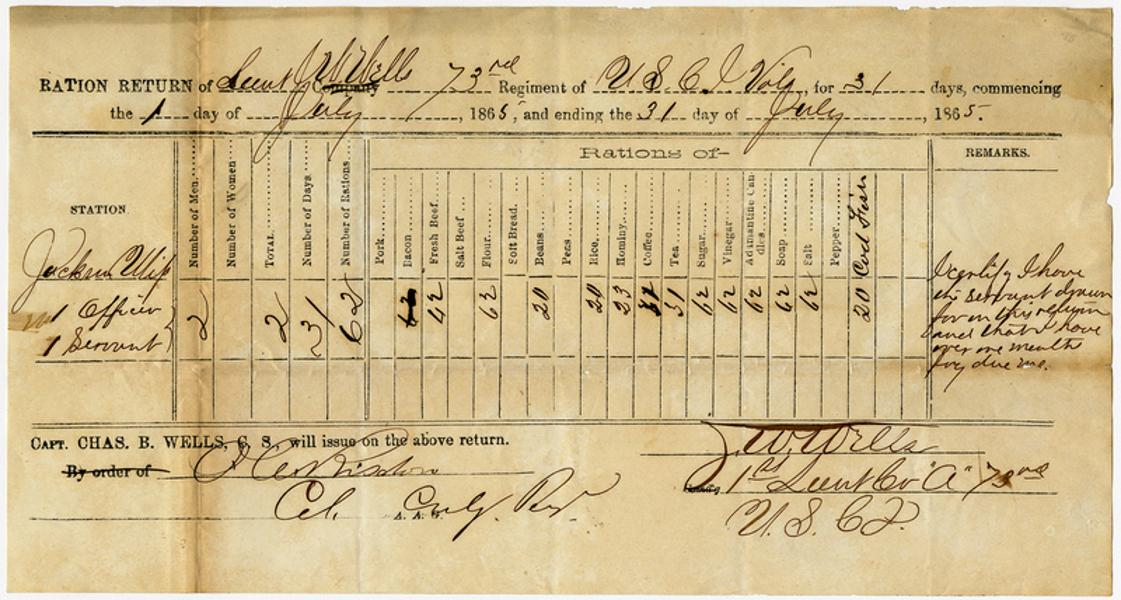 RATION RETURN of Lieut J W Wells Company 73rd Regiment of U.S.C.I Vols, for 31 days, commencing
the 1 day of July, 1865, and ending the 31 day of July, 1865.
Rations of-
STATION
Number of Men.
Number of Women
TOTAL
Number of Days.
Number of Rations.
Pork
Bacon
Fresh Beef
Salt Beef
Flour
Soft Bread.
Beans
Peas
Rice
Hominy
Coffee
Tea
Sugar
Vinegar
Adamantine Candles.
Soap
Salt
Pepper
Cod Fish
REMARKS.
Jackson Miss
1 Officer
1 Servant
2 2 31 62 42 62 20 20 23 31 62 62 62 62 62 20
I certify I have
the servant drawn
for on this return
and that I have
over one months
pay due me.
CAPT. CHAS. B. WELLS, C. S. will issue on the above return.
By order of
Col. Comdg. Post
A. A. G.
J. W. Wells
1st Lieut Co "A" 73rd
U. S. C. I.